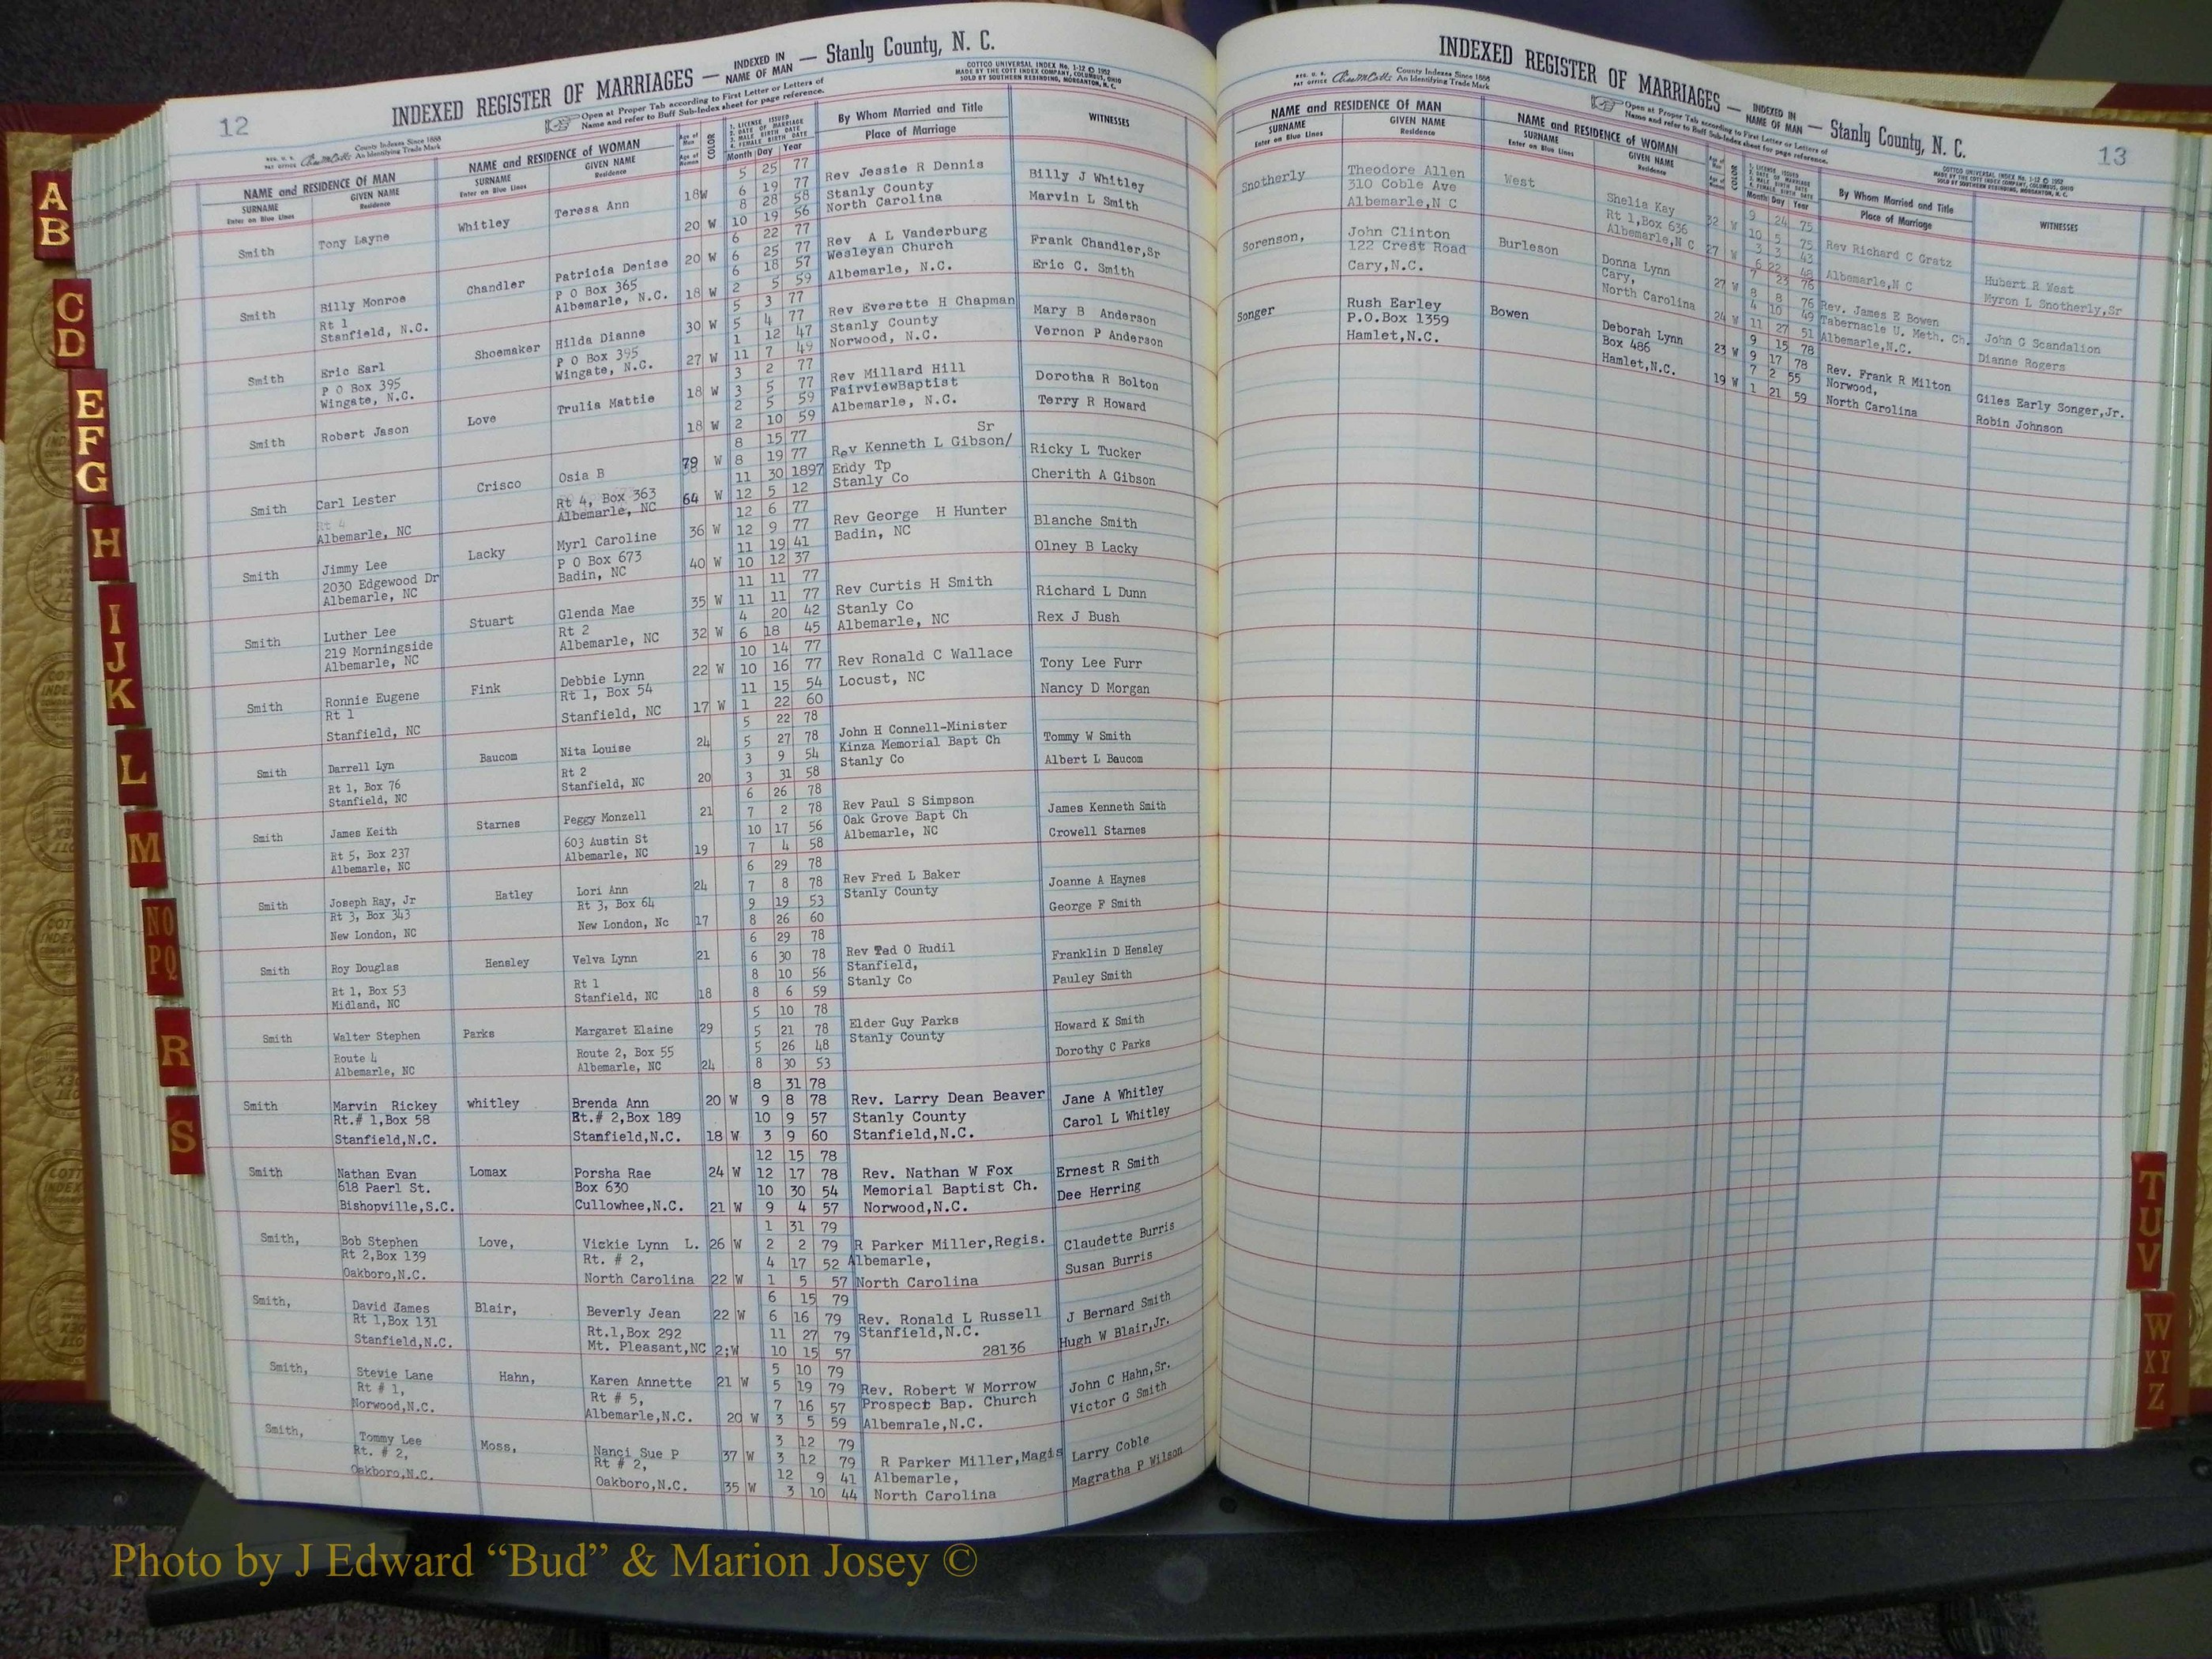 12
INDEXED REGISTER OF MARRIAGES — INDEXED IN NAME OF MAN — Stanly County, N. C.
Open at Proper Tab according to First Letter or Letters of
Name and refer to Buff Sub-Index sheet for page reference.
COTTCO UNIVERSAL INDEX No. 1-12 © 1952
MADE BY THE COTT INDEX COMPANY, COLUMBUS, OHIO
SOLD BY SOUTHERN REBINDING, MORGANTON, N. C.
County Indexes Since 1888
An Identifying Trade Mark
NAME and RESIDENCE OF MAN
SURNAME
Enter on Blue Lines
GIVEN NAME
Residence
NAME and RESIDENCE OF WOMAN
SURNAME
Enter on Blue Lines
GIVEN NAME
Residence
Age of Man
Age of Woman
COLOR
1. LICENSE ISSUED
2. DATE OF MARRIAGE
3. MALE BIRTH DATE
4. FEMALE BIRTH DATE
Month Day Year
By Whom Married and Title
Place of Marriage
WITNESSES
Smith Tony Layne Whitley Teresa Ann 18W 5 25 77 Rev Jessie R Dennis Billy J Whitley
6 19 77 Stanly County Marvin L Smith
8 28 58 North Carolina
20 W 10 19 56
Smith Billy Monroe Chandler Patricia Denise 20 W 6 22 77 Rev A L Vanderburg Frank Chandler,Sr
Rt 1 P O Box 365 6 25 77 Wesleyan Church Eric C. Smith
Stanfield, N.C. Albemarle, N.C. 18 W 6 18 57 Albemarle, N.C.
2 5 59
Smith Eric Earl Shoemaker Hilda Dianne 30 W 5 3 77 Rev Everette H Chapman Mary B Anderson
P O Box 395 P O Box 395 5 4 77 Stanly County Vernon P Anderson
Wingate, N.C. Wingate, N.C. 27 W 1 12 47 Norwood, N.C.
11 7 49
Smith Robert Jason Love Trulia Mattie 18 W 3 2 77 Rev Millard Hill Dorotha R Bolton
3 5 77 FairviewBaptist Terry R Howard
2 5 59 Albemarle, N.C.
18 W 2 10 59
Sr
Smith Carl Lester Crisco Osia B 79 W 8 15 77 Rev Kenneth L Gibson/ Ricky L Tucker
Rt 4 Rt 4, Box 363 8 19 77 Endy Tp Cherith A Gibson
Albemarle, NC Albemarle, NC 64 W 11 30 1897 Stanly Co
12 5 12
Smith Jimmy Lee Lacky Myrl Caroline 36 W 12 6 77 Rev George H Hunter Blanche Smith
2030 Edgewood Dr P O Box 673 12 9 77 Badin, NC Olney B Lacky
Albemarle, NC Badin, NC 40 W 11 19 41
10 12 37
Smith Luther Lee Stuart Glenda Mae 35 W 11 11 77 Rev Curtis H Smith Richard L Dunn
219 Morningside Rt 2 11 11 77 Stanly Co Rex J Bush
Albemarle, NC Albemarle, NC 32 W 4 20 42 Albemarle, NC
6 18 45
Smith Ronnie Eugene Fink Debbie Lynn 22 W 10 14 77 Rev Ronald C Wallace Tony Lee Furr
Rt 1 Rt 1, Box 54 10 16 77 Locust, NC Nancy D Morgan
Stanfield, NC Stanfield, NC 17 W 11 15 54
1 22 60
Smith Darrell Lyn Baucom Nita Louise 24 5 22 78 John H Connell-Minister Tommy W Smith
Rt 1, Box 76 Rt 2 5 27 78 Kinza Memorial Bapt Ch Albert L Baucom
Stanfield, NC Stanfield, NC 20 3 9 54 Stanly Co
3 31 58
Smith James Keith Starnes Peggy Monzell 21 6 26 78 Rev Paul S Simpson James Kenneth Smith
Rt 5, Box 237 603 Austin St 7 2 78 Oak Grove Bapt Ch Crowell Starnes
Albemarle, NC Albemarle, NC 19 10 17 56 Albemarle, NC
7 4 58
Smith Joseph Ray, Jr Hatley Lori Ann 24 6 29 78 Rev Fred L Baker Joanne A Haynes
Rt 3, Box 343 Rt 3, Box 64 7 8 78 Stanly County George F Smith
New London, NC New London, Nc 17 9 19 53
8 26 60
Smith Roy Douglas Hensley Velva Lynn 21 6 29 78 Rev Tad O Rudil Franklin D Hensley
Rt 1, Box 53 Rt 1 6 30 78 Stanfield, Pauley Smith
Midland, NC Stanfield, NC 18 8 10 56 Stanly Co
8 6 59
Smith Walter Stephen Parks Margaret Elaine 29 5 10 78 Elder Guy Parks Howard K Smith
Route 4 Route 2, Box 55 5 21 78 Stanly County Dorothy C Parks
Albemarle, NC Albemarle, NC 24 5 26 48
8 30 53
Smith Marvin Rickey whitley Brenda Ann 20 W 8 31 78 Rev. Larry Dean Beaver Jane A Whitley
Rt.# 1,Box 58 Rt.# 2,Box 189 9 8 78 Stanly County Carol L Whitley
Stanfield,N.C. Stanfield,N.C. 18 W 10 9 57 Stanfield,N.C.
3 9 60
Smith Nathan Evan Lomax Porsha Rae 24 W 12 15 78 Rev. Nathan W Fox Ernest R Smith
618 Paerl St. Box 630 12 17 78 Memorial Baptist Ch. Dee Herring
Bishopville,S.C. Cullowhee,N.C. 21 W 10 30 54 Norwood,N.C.
9 4 57
Smith, Bob Stephen Love, Vickie Lynn L. 26 W 1 31 79 R Parker Miller,Regis. Claudette Burris
Rt 2,Box 139 Rt. # 2, 2 2 79 Albemarle, Susan Burris
Oakboro,N.C. North Carolina 22 W 4 17 52 North Carolina
1 5 57
Smith, David James Blair, Beverly Jean 22 W 6 15 79 Rev. Ronald L Russell J Bernard Smith
Rt 1,Box 131 Rt.1,Box 292 6 16 79 Stanfield,N.C. Hugh W Blair,Jr.
Stanfield,N.C. Mt. Pleasant,NC W 11 27 79 28136
10 15 57
Smith, Stevie Lane Hahn, Karen Annette 21 W 5 10 79 Rev. Robert W Morrow John C Hahn,Sr.
Rt # 1, Rt # 5, 5 19 79 Prospect Bap. Church Victor G Smith
Norwood,N.C. Albemarle,N.C. 20 W 7 16 57 Albemrale,N.C.
3 5 59
Smith, Tommy Lee Moss, Nanci Sue P 37 W 3 12 79 R Parker Miller,Magis Larry Coble
Rt. # 2, Rt # 2, 3 12 79 Albemarle, Magratha P Wilson
Oakboro,N.C. Oakboro,N.C. 35 W 12 9 41 North Carolina
3 10 44
INDEXED REGISTER OF MARRIAGES — INDEXED IN NAME OF MAN — Stanly County, N. C.
13
County Indexes Since 1888
An Identifying Trade Mark
Open at Proper Tab according to First Letter or Letters of
Name and refer to Buff Sub-Index sheet for page reference.
COTTCO UNIVERSAL INDEX No. 1-12 © 1952
MADE BY THE COTT INDEX COMPANY, COLUMBUS, OHIO
SOLD BY SOUTHERN REBINDING, MORGANTON, N. C.
NAME and RESIDENCE OF MAN
SURNAME
Enter on Blue Lines
GIVEN NAME
Residence
NAME and RESIDENCE OF WOMAN
SURNAME
Enter on Blue Lines
GIVEN NAME
Residence
COLOR
Month Day Year
By Whom Married and Title
Place of Marriage
WITNESSES
Snotherly Theodore Allen West Shelia Kay 32 W 9 24 75 Rev Richard C Gratz Hubert R West
310 Coble Ave Rt 1,Box 636 10 5 75 Albemarle,N C Myron L Snotherly,Sr
Albemarle,N C Albemarle,N C 27 W 3 3 43
6 22 48
Sorenson, John Clinton Burleson Donna Lynn 27 W 7 23 76 Rev. James E Bowen John G Scandalion
122 Crest Road Cary, 8 8 76 Tabernacle U. Meth. Ch. Dianne Rogers
Cary,N.C. North Carolina 24 W 4 10 49 Albemarle,N.C.
11 27 51
Songer Rush Earley Bowen Deborah Lynn 23 W 9 15 78 Rev. Frank R Milton Giles Early Songer,Jr.
P.O.Box 1359 Box 486 9 17 78 Norwood, Robin Johnson
Hamlet,N.C. Hamlet,N.C. 19 W 7 2 55 North Carolina
1 21 59
A
B
C
D
E
F
G
H
I
J
K
L
M
NO
PQ
R
S
T
U
V
W
XY
Z
Photo by J Edward “Bud” & Marion Josey ©